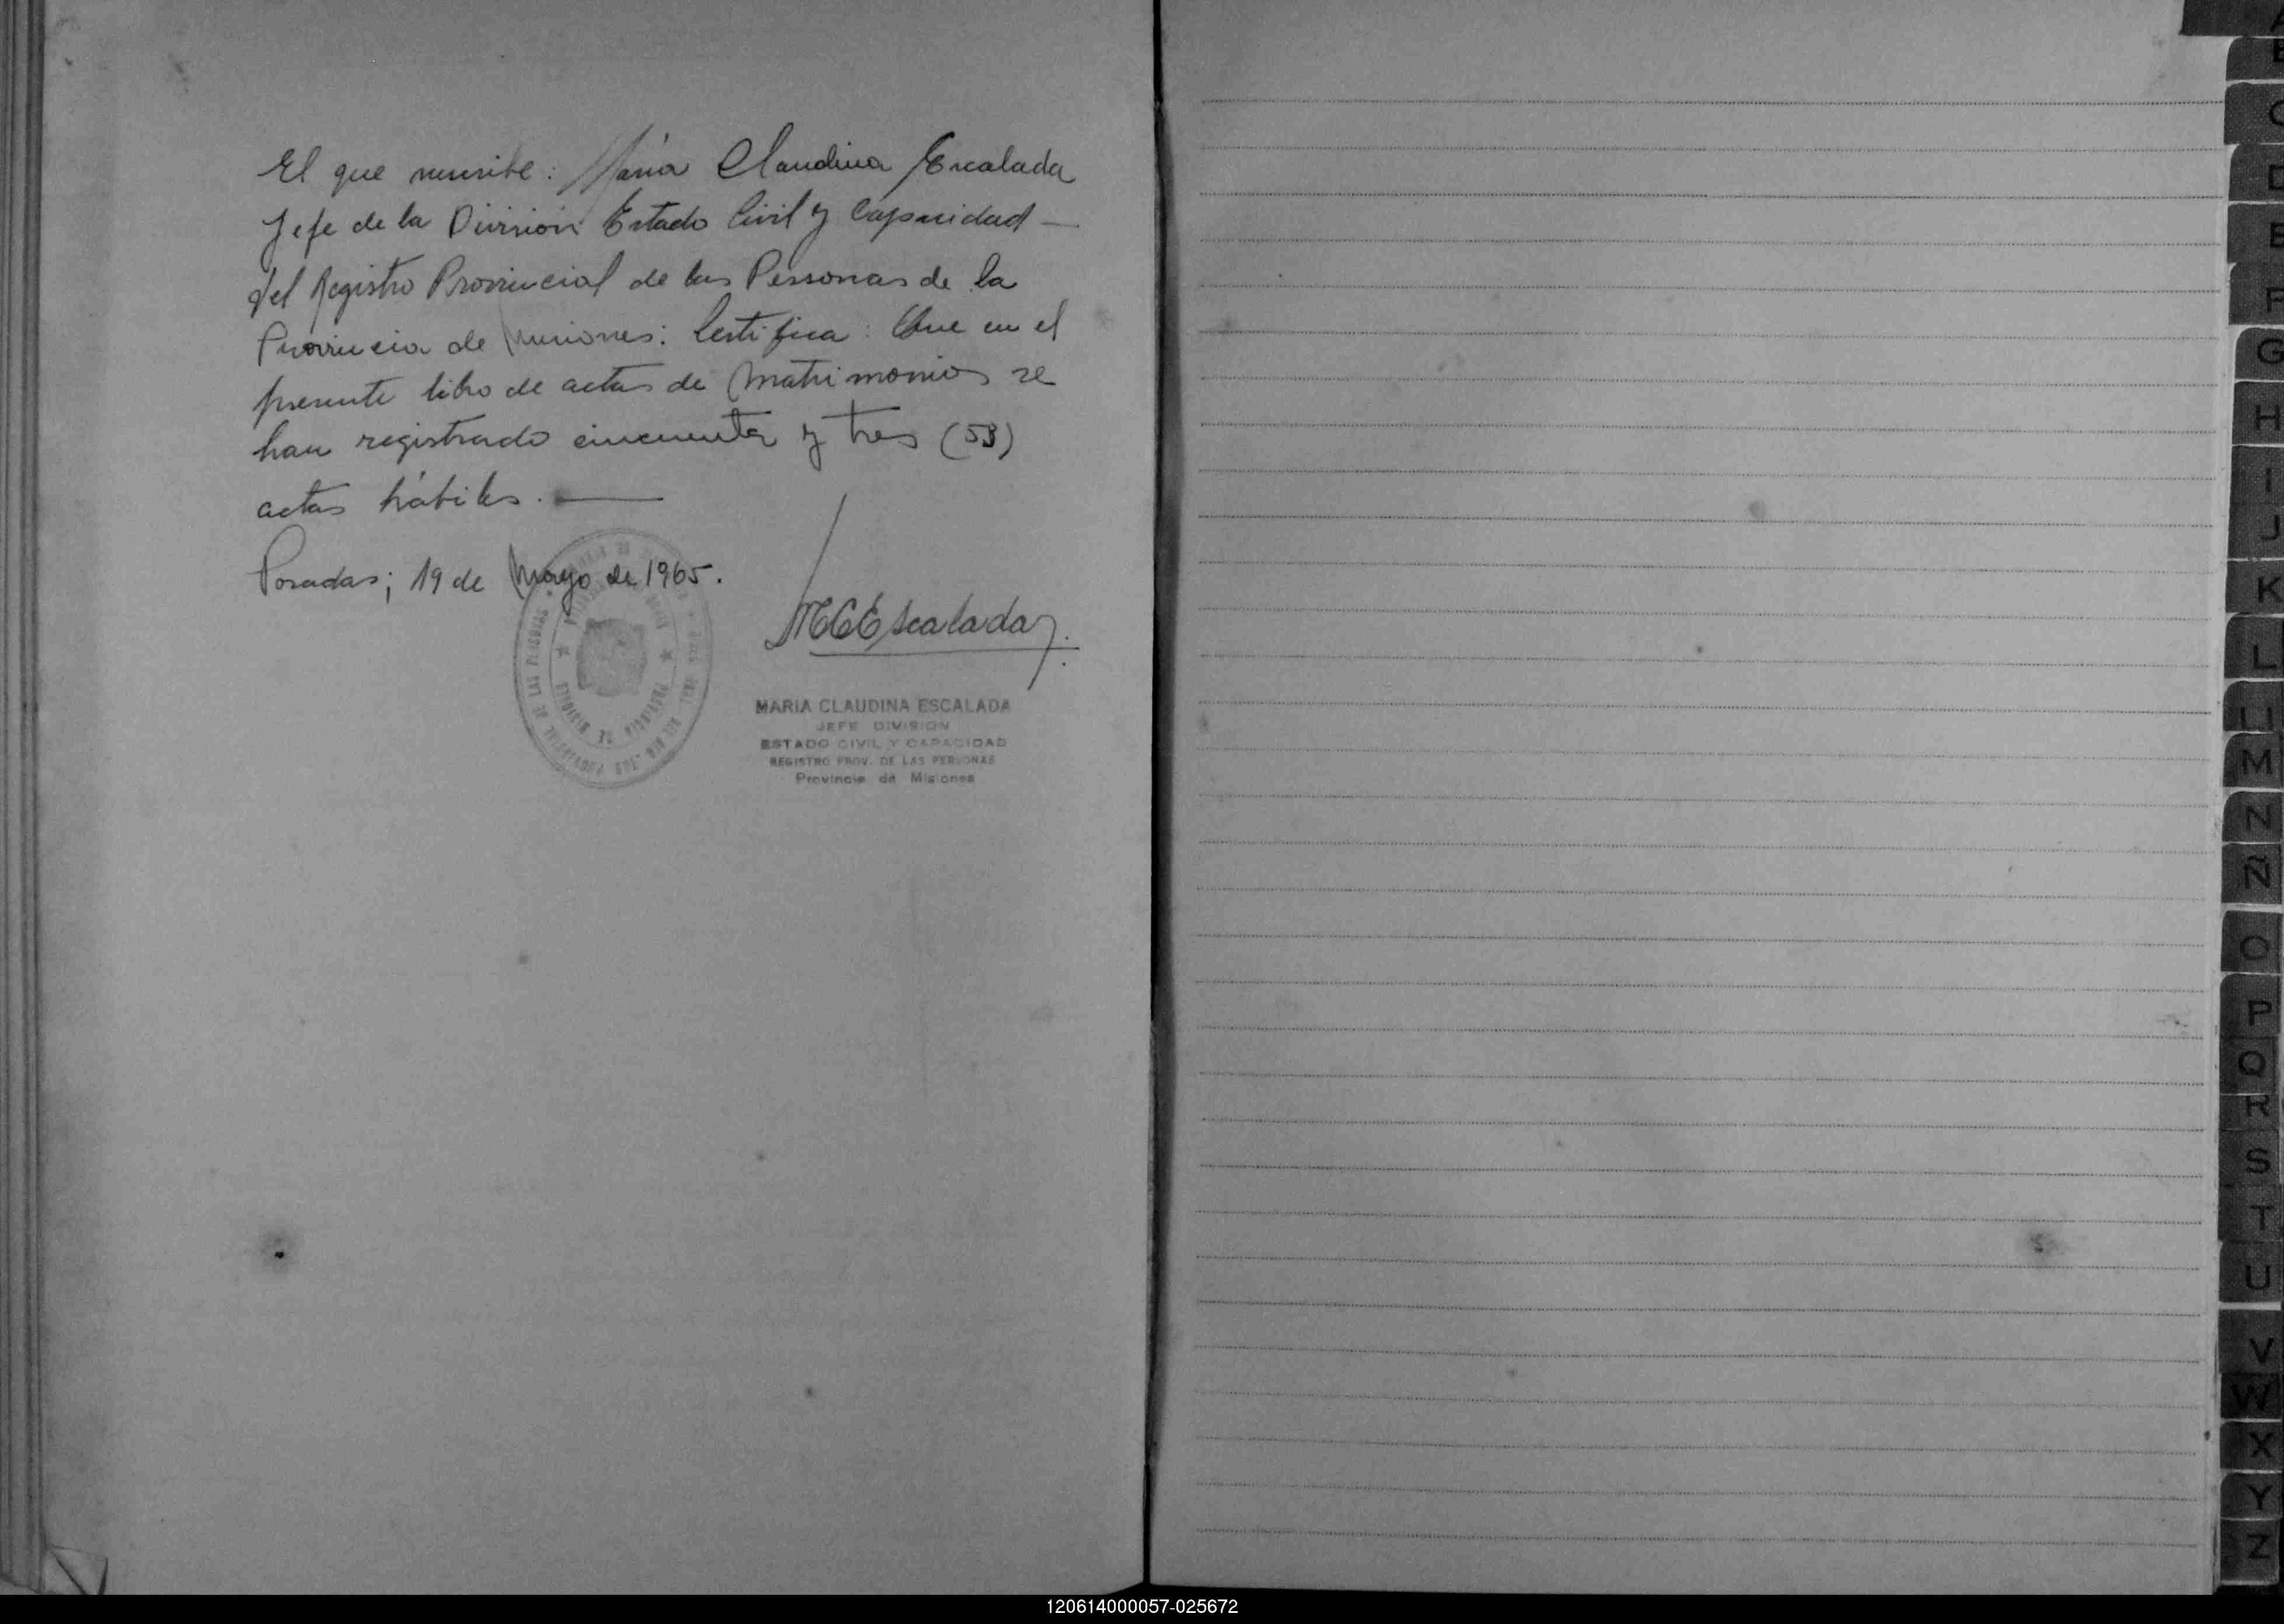 El que suscribe: María Claudina Escalada
Jefe de la División Estado Civil y Capacidad —
del Registro Provincial de las Personas de la
Provincia de Misiones: Certifica: Que en el
presente libro de actas de Matrimonios se
han registrado cincuenta y tres (53)
actas hábiles. —
Posadas; 19 de Mayo de 1965.
MCEscalada
MARIA CLAUDINA ESCALADA
JEFE DIVISION
ESTADO CIVIL Y CAPACIDAD
REGISTRO PROV. DE LAS PERSONAS
Provincia de Misiones
PROVINCIAL DE LAS PERSONAS
PROVINCIA DE MISIONES
A
B
C
D
E
F
G
H
I
J
K
L
Ll
M
N
Ñ
O
P
Q
R
S
T
U
V
W
X
Y
Z
120614000057-025672